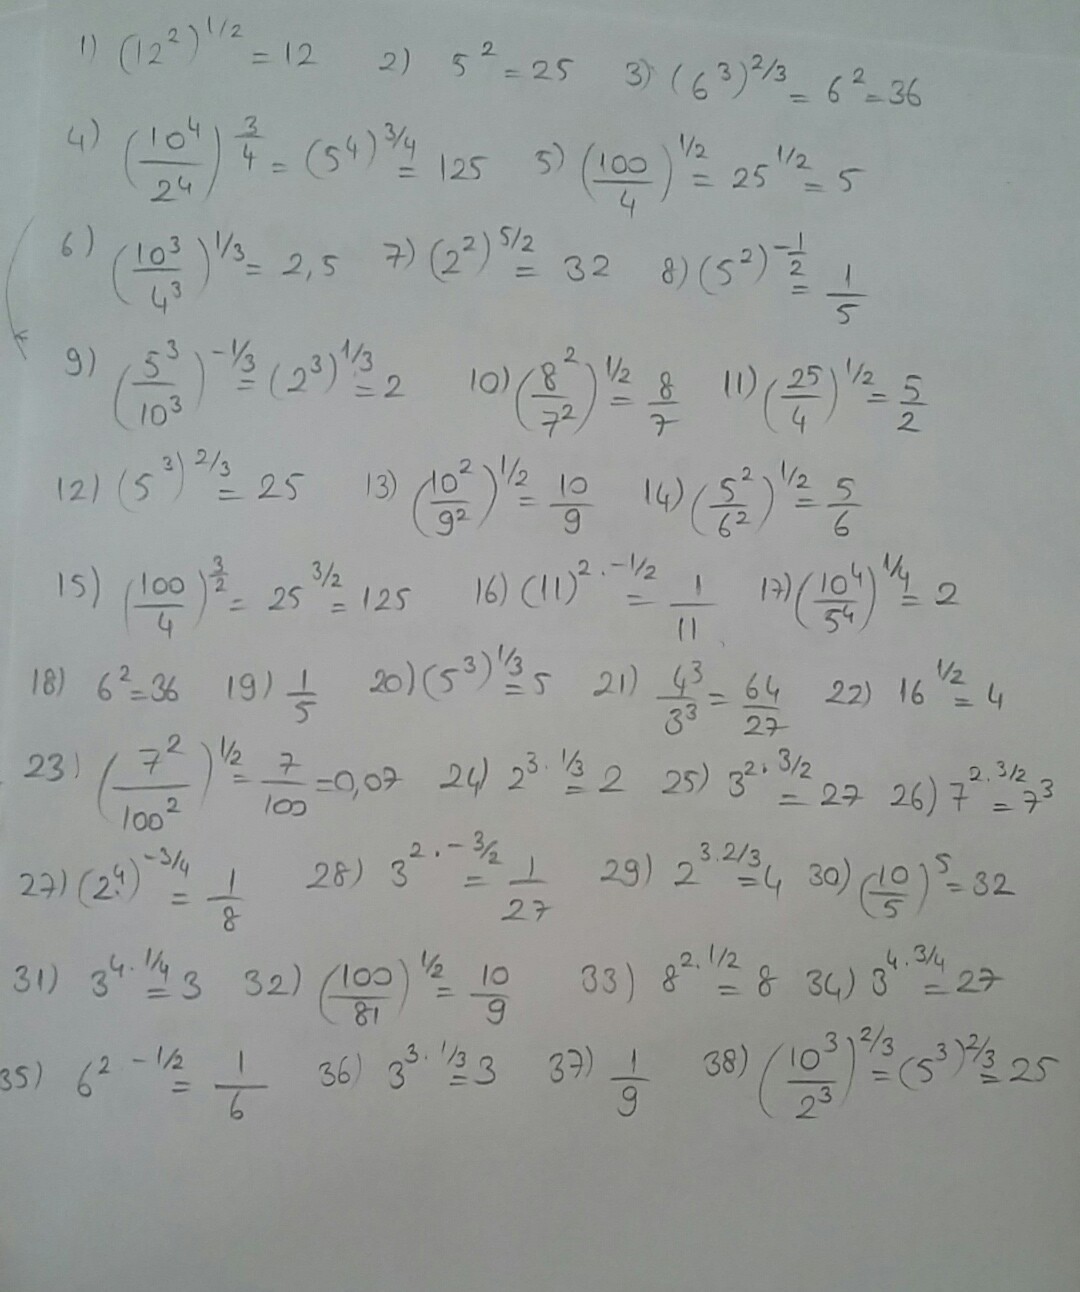 1) (12²)^1/2 = 12 2) 5² = 25 3) (6³)^2/3 = 6² = 36
4) (10⁴/2⁴)^3/4 = (5⁴)^3/4 = 125 5) (100/4)^1/2 = 25^1/2 = 5
6) (10³/4³)^1/3 = 2,5 7) (2²)^5/2 = 32 8) (5²)^-1/2 = 1/5
9) (5³/10³)^-1/3 = (2³)^1/3 = 2 10) (8²/7²)^1/2 = 8/7 11) (25/4)^1/2 = 5/2
12) (5³)^2/3 = 25 13) (10²/9²)^1/2 = 10/9 14) (5²/6²)^1/2 = 5/6
15) (100/4)^3/2 = 25^3/2 = 125 16) (11)^2.-1/2 = 1/11 17) (10⁴/5⁴)^1/4 = 2
18) 6² = 36 19) 1/5 20) (5³)^1/3 = 5 21) 4³/3³ = 64/27 22) 16^1/2 = 4
23) (7²/100²)^1/2 = 7/100 = 0,07 24) 2^3.1/3 = 2 25) 3^2.3/2 = 27 26) 7^2.3/2 = 7³
27) (2⁴)^-3/4 = 1/8 28) 3^2.-3/2 = 1/27 29) 2^3.2/3 = 4 30) (10/5)^5 = 32
31) 3^4.1/4 = 3 32) (100/81)^1/2 = 10/9 33) 8^2.1/2 = 8 34) 3^4.3/4 = 27
35) 6^2 -1/2 = 1/6 36) 3^3.1/3 = 3 37) 1/9 38) (10³/2³)^2/3 = (5³)^2/3 = 25